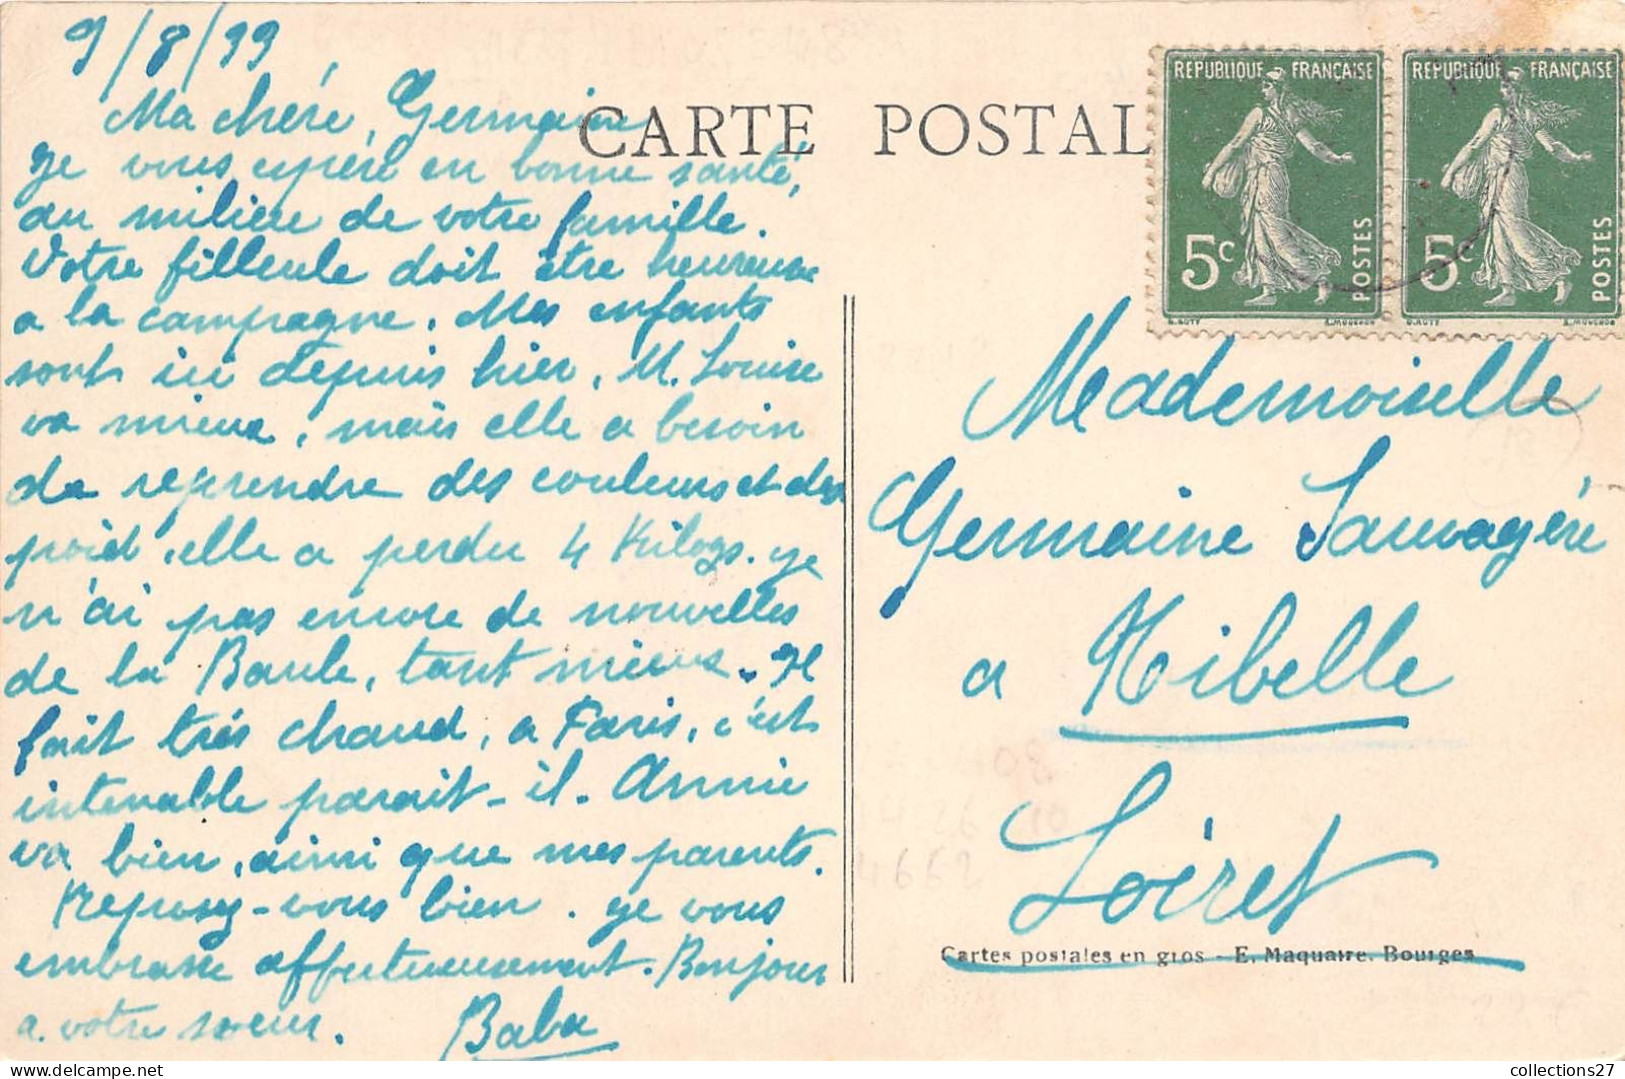 9/8/99
Ma chére, Germaine
je vous espére en bonne santé,
au miliere de votre famille.
Votre filleule doit être heureuse
a la campagne. Mes enfants
sont ici depuis hier, M. Louise
va mieux, mais elle a besoin
de reprendre des couleurs et des
poid, elle a perdu 4 Kilogs. je
n'ai pas encore de nouvelles
de la Baule, tant mieux. Il
fait trés chaud, a Paris, c'est
intenable parait-il. Annie
va bien, ainsi que mes parents.
Reposez-vous bien. je vous
embrasse affectueusement. Bonjour
a votre soeur. Baba
CARTE POSTAL
REPUBLIQUE FRANÇAISE
5c
POSTES
O. ROTY
E. MOUCHON
REPUBLIQUE FRANÇAISE
5c
POSTES
O. ROTY
E. MOUCHON
Mademoiselle
Germaine Sauvagére
a Nibelle
Loiret
Cartes postales en gros - E. Maquaire. Bourges
08
14 26 10
4662
collections27